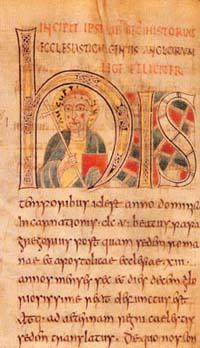 INCIPIT IPSIUS HISTORIAE
ECCLESIASTICAE GENTIS ANGLORUM
LEGE FELICITER
hIS
temporibus id est anno dominicae
incarnationis dc u beatus papa
gregorius post quam sedem roma
nae et apostolicae ecclesiae xiii
annos menses sex et dies decem glo
riosissime rexit defunctus est
atq· ad aeternam regni caelestis
sedem translatus. De quo nos con